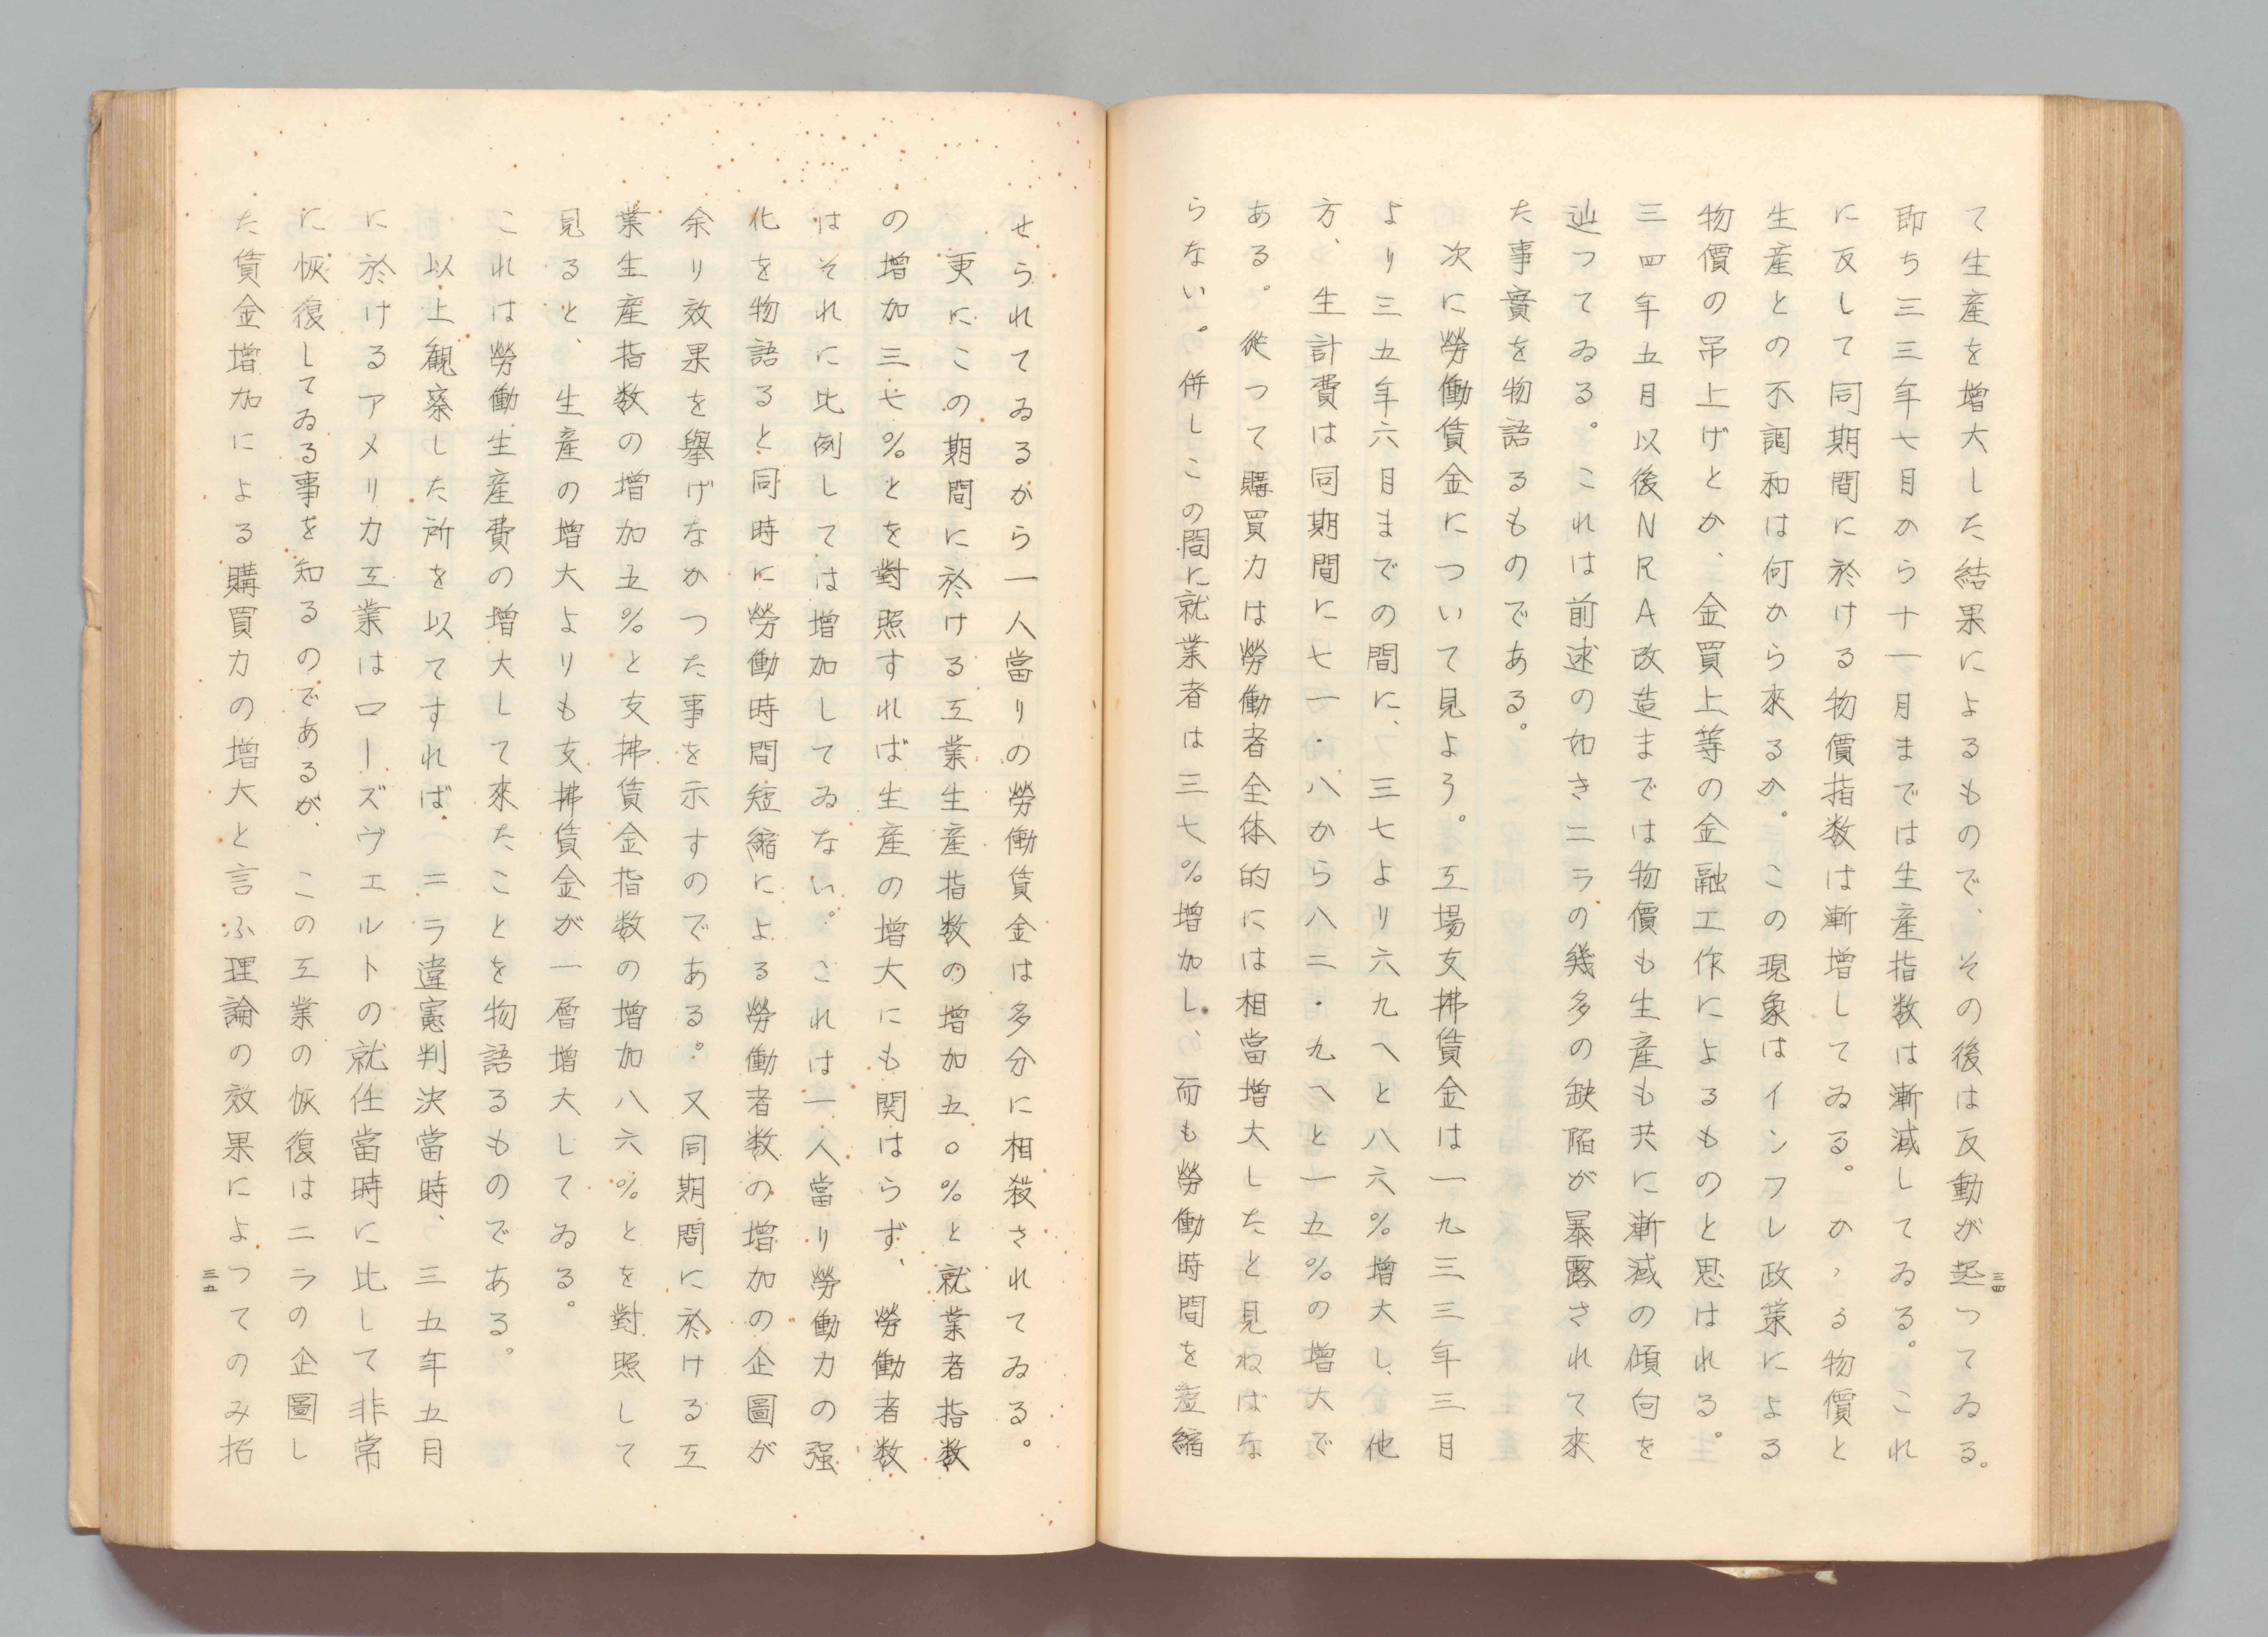 て生産を増大した結果によるもので、その後は反動が起つてゐる。
即ち三三年七月から十一月までは生産指数は漸減してゐる。これ
に反して同期間に於ける物價指数は漸増してゐる。かゝる物價と
生産との不調和は何から來るか。この現象はインフレ政策による
物價の吊上げとか、金買上等の金融工作によるものと思はれる。
三四年五月以後NRA改造までは物價も生産も共に漸減の傾向を
辿つてゐる。これは前述の如きニラの幾多の缺陥が暴露されて來
た事實を物語るものである。
次に勞働賃金について見よう。工場支拂賃金は一九三三年三月
より三五年六月までの間に、三七より六九へと八六%増大し、他
方、生計費は同期間に七一・八から八三・九へと一五%の増大で
ある。従つて購買力は勞働者全体的には相當増大したと見ねばな
らない。併しこの間に就業者は三七%増加し、而も勞働時間を短縮
三四
せられてゐるから一人當りの勞働賃金は多分に相殺されてゐる。
更にこの期間に於ける工業生産指数の増加五〇%と就業者指数
の増加三七%とを對照すれば生産の増大にも関はらず、勞働者数
はそれに比例しては増加してゐない。これは一人當り勞働力の强
化を物語ると同時に勞働時間短縮による勞働者数の増加の企圖が
余り效果を擧げなかつた事を示すのである。又同期間に於ける工
業生産指数の増加五%と支拂賃金指数の増加八六%とを對照して
見ると、生産の増大よりも支拂賃金が一層増大してゐる。
これは勞働生産費の増大して來たことを物語るものである。
以上観察した所を以てすれば、ニラ違憲判決當時、三五年五月
に於けるアメリカ工業はローズヴェルトの就任當時に比して非常
に恢復してゐる事を知るのであるが、この工業の恢復はニラの企圖し
た賃金増加による購買力の増大と言ふ理論の效果によつてのみ招
三五